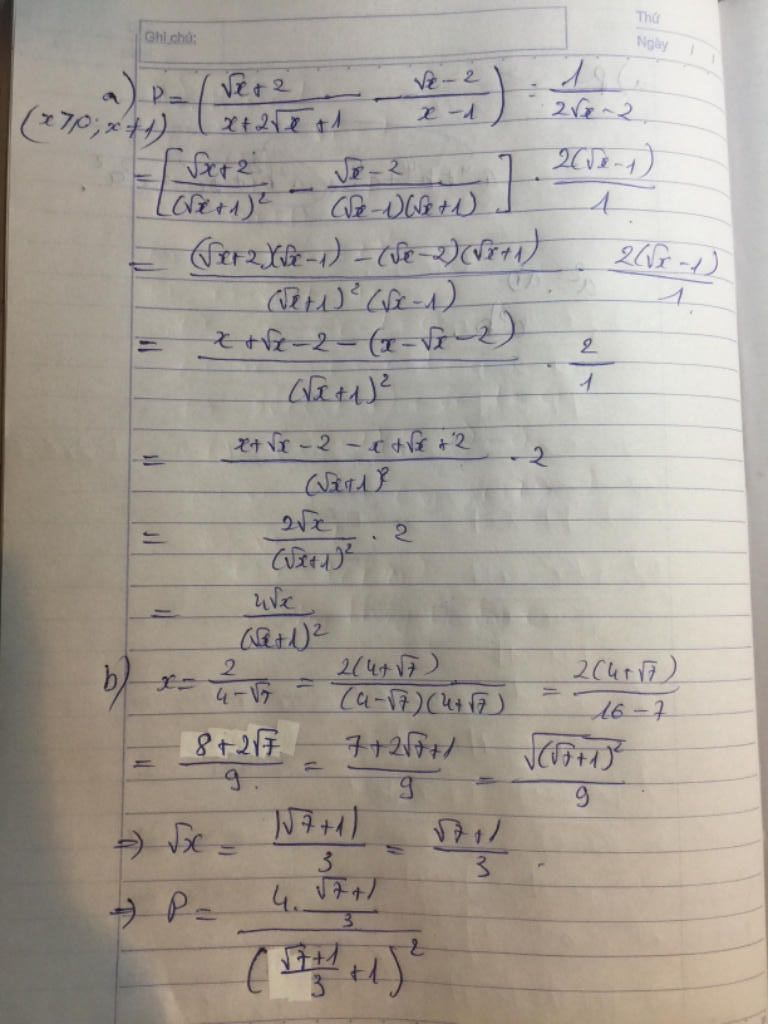 Ghi chú:
Thứ
Ngày / /
a) P = ( (√x+2)/(x+2√x+1) - (√x-2)/(x-1) ) : 1/(2√x-2)
(x>0; x≠1)
= [ (√x+2)/(√x+1)² - (√x-2)/((√x-1)(√x+1)) ] · 2(√x-1)/1
= ((√x+2)(√x-1) - (√x-2)(√x+1))/((√x+1)²(√x-1)) · 2(√x-1)/1
= (x+√x-2-(x-√x-2))/(√x+1)² · 2/1
= (x+√x-2-x+√x+2)/(√x+1)² · 2
= 2√x/(√x+1)² · 2
= 4√x/(√x+1)²
b) x = 2/(4-√7) = 2(4+√7)/((4-√7)(4+√7)) = 2(4+√7)/(16-7)
= (8+2√7)/9 = (7+2√7+1)/9 = √((√7+1)²)/9
⇒ √x = |√7+1|/3 = (√7+1)/3.
⇒ P = (4·(√7+1)/3)/((√7+1)/3+1)²